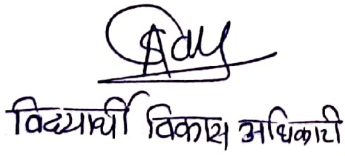 विद्यार्थी विकास अधिकारी